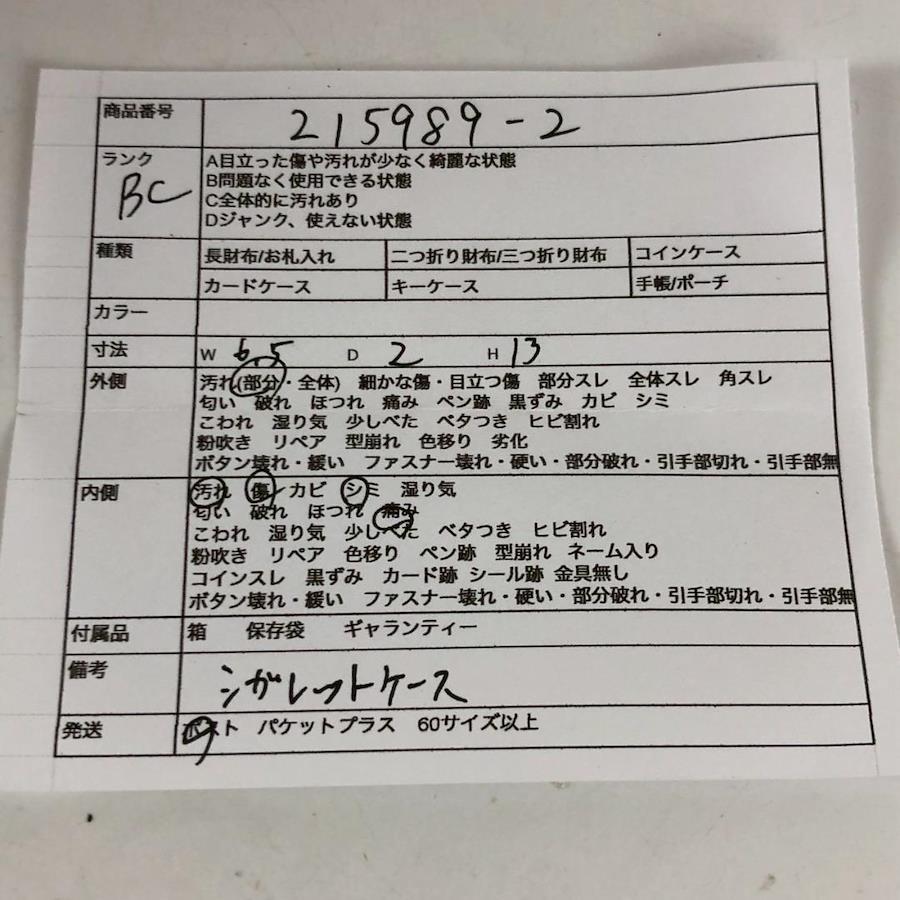 商品番号 215989-2
ランク BC
A目立った傷や汚れが少なく綺麗な状態
B問題なく使用できる状態
C全体的に汚れあり
Dジャンク、使えない状態
種類 長財布/お札入れ 二つ折り財布/三つ折り財布 コインケース
カードケース キーケース 手帳/ポーチ
カラー
寸法 W 6.5 D 2 H 13
外側 汚れ(部分・全体) 細かな傷・目立つ傷 部分スレ 全体スレ 角スレ
匂い 破れ ほつれ 痛み ペン跡 黒ずみ カビ シミ
こわれ 湿り気 少しべた ベタつき ヒビ割れ
粉吹き リペア 型崩れ 色移り 劣化
ボタン壊れ・緩い ファスナー壊れ・硬い・部分破れ・引手部切れ・引手部無
内側 汚れ 傷 カビ シミ 湿り気
匂い 破れ ほつれ 痛み
こわれ 湿り気 少しべた ベタつき ヒビ割れ
粉吹き リペア 色移り ペン跡 型崩れ ネーム入り
コインスレ 黒ずみ カード跡 シール跡 金具無し
ボタン壊れ・緩い ファスナー壊れ・硬い・部分破れ・引手部切れ・引手部無
付属品 箱 保存袋 ギャランティー
備考 シガレットケース
発送 ポスト パケットプラス 60サイズ以上